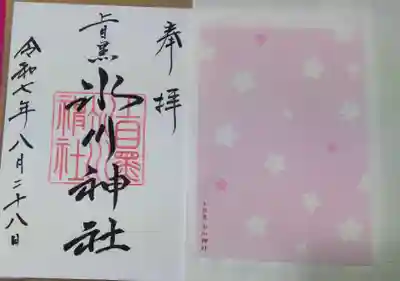 奉拝
上目黒
氷川神社
令和七年八月二十八日
上目黒氷川神社